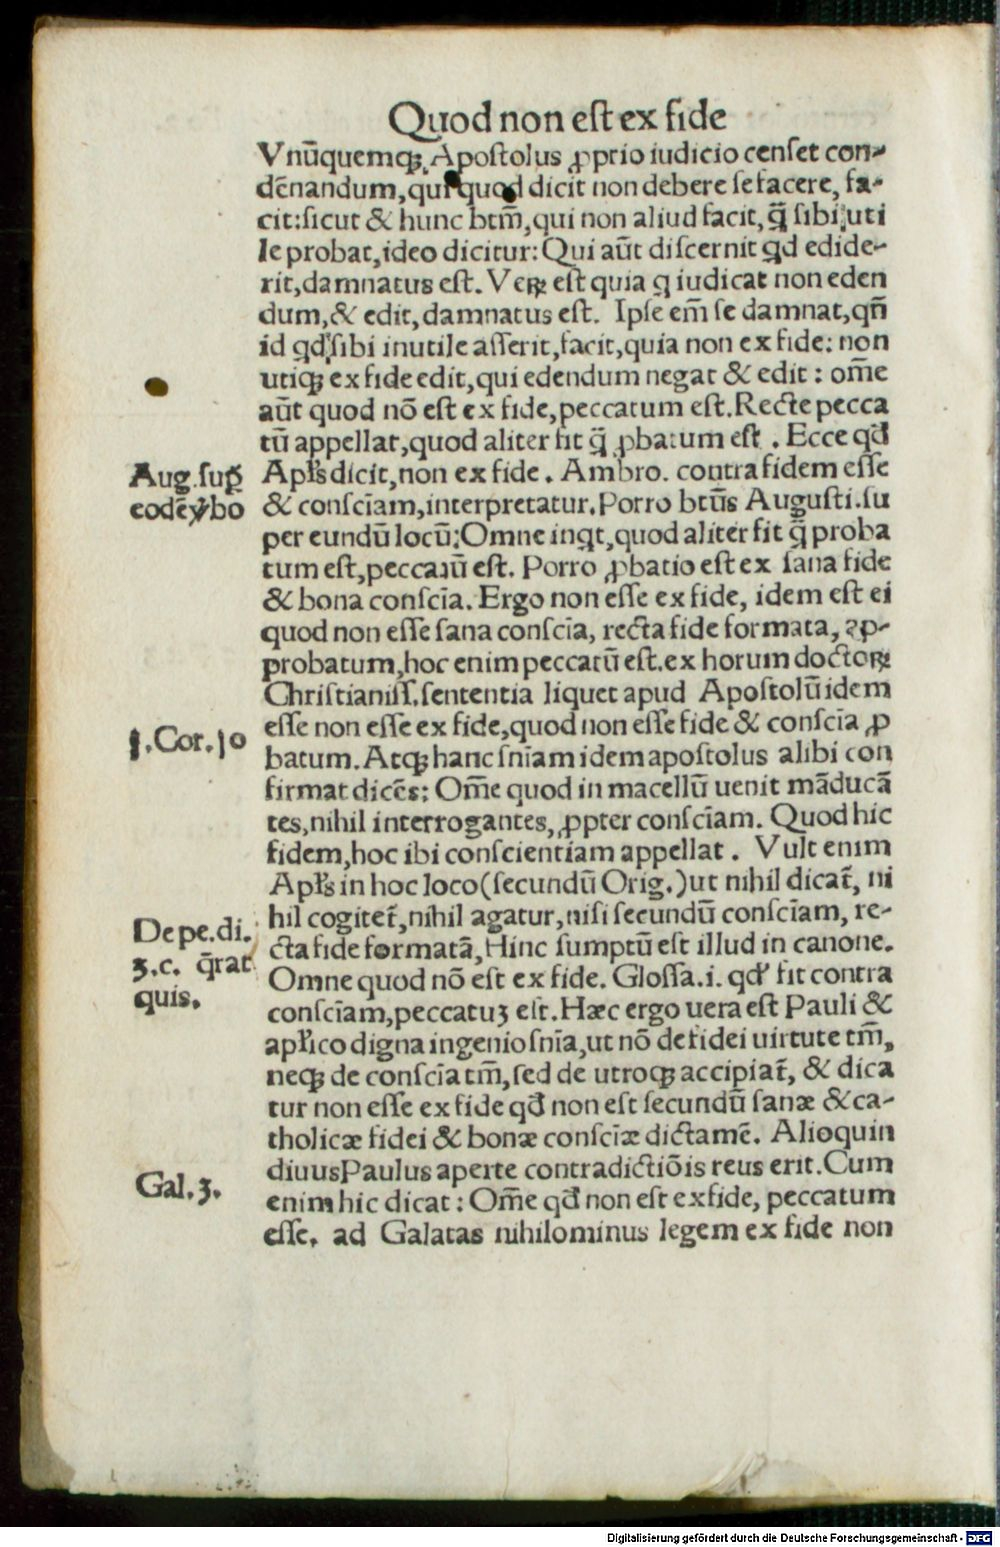 Quod non est ex fide
Vnūquemqꝫ Apostolus ꝓprio iudicio censet con-
dēnandum, qui quod dicit non debere se facere, fa-
cit: sicut & hunc btm̄, qui non aliud facit, q̄ sibi uti
le probat, ideo dicitur: Qui aūt discernit qd edide-
rit, damnatus est. Veꝝ est quia q iudicat non eden
dum, & edit, damnatus est. Ipse em̄ se damnat, qn̄
id qd sibi inutile asserit, facit, quia non ex fide: non
utiqꝫ ex fide edit, qui edendum negat & edit: om̄e
aūt quod nō est ex fide, peccatum est. Recte pecca
tū appellat, quod aliter fit q̄ ꝓbatum est. Ecce qđ
Apłs dicit, non ex fide. Ambro. contra fidem esse
& consc̄iam, interpretatur. Porro btūs Augusti. su
per eundū locū: Omne inqt, quod aliter fit q̄ proba
tum est, peccatū est. Porro ꝓbatio est ex sana fide
& bona consc̄ia. Ergo non esse ex fide, idem est ei
quod non esse sana consc̄ia, recta fide formata, ap-
probatum, hoc enim peccatū est. ex horum doctoꝝ
Christianiss. sententia liquet apud Apostolū idem
esse non esse ex fide, quod non esse fide & consc̄ia ꝓ
batum. Atqꝫ hanc sn̄iam idem apostolus alibi con
firmat dicēs: Om̄e quod in macellū uenit māducā
tes, nihil interrogantes, ꝓpter consc̄iam. Quod hic
fidem, hoc ibi conscientiam appellat. Vult enim
Apłs in hoc loco (secundū Orig.) ut nihil dicat̄, ni
hil cogitet̄, nihil agatur, nisi secundū consc̄iam, re-
cta fide formatā, Hinc sumptū est illud in canone.
Omne quod nō est ex fide. Glossa. i. qđ fit contra
consc̄iam, peccatuꝫ est. Hæc ergo uera est Pauli &
apłico digna ingenio sn̄ia, ut nō de fidei uirtute tm̄,
neqꝫ de consc̄ia tm̄, sed de utroqꝫ accipiat̄, & dica
tur non esse ex fide qđ non est secundū sanæ & ca-
tholicæ fidei & bonæ consc̄iæ dictamē. Alioquin
diuus Paulus aperte contradictiōis reus erit. Cum
enim hic dicat: Om̄e qđ non est ex fide, peccatum
esse. ad Galatas nihilominus legem ex fide non
Aug. sup̄
eodē v̓bo
1. Cor. 10
De pe. di.
3. c. q̄rat
quis.
Gal. 3.
Digitalisierung gefördert durch die Deutsche Forschungsgemeinschaft - DFG